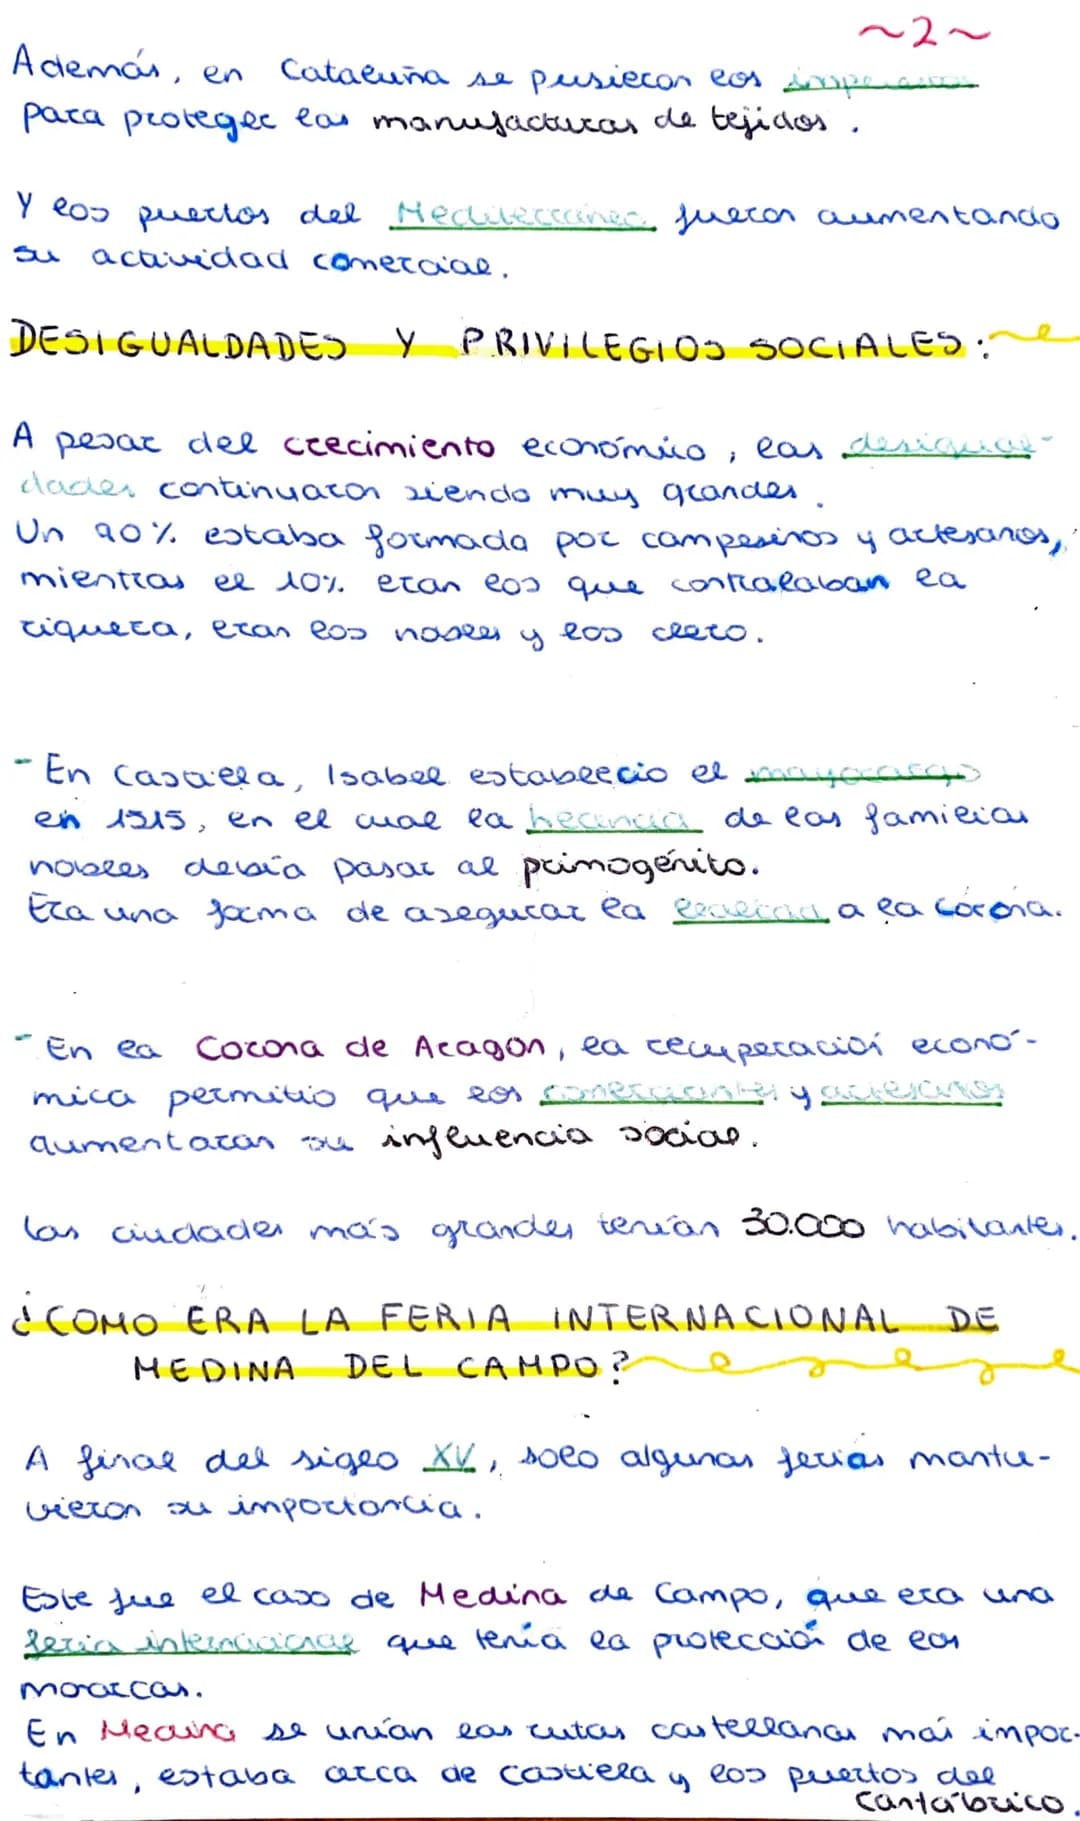 ~2~
Además, en Cataluña se pusieron los
para proteger las manufacturas de tejidos.
Y los puertos del Mediterráneo fueron aumentando
su actividad comercial.
DESIGUALDADES Y PRIVILEGIOS SOCIALES:
A pesar del crecimiento económico, las desigual-
dades continuaron siendo muy grandes.
Un 90% estaba formada por campesinos y artesanos,
mientras el 10% eran los que controlaban la
riqueza, eran los nobles y los clero.
- En Castilla, Isabel establecio el mayorazgo
en 1515, en el cual la herencia de las familias
nobles debía pasar al primogénito.
Era una forma de asegurar la lealtad a la corona.
- En la Corona de Aragón, la recuperación econó-
mica permitio que los comerciantes y artesanos
aumentaran su influencia social.
Las ciudades más grandes tenían 30.000 habitantes.
¿COMO ERA LA FERIA INTERNACIONAL DE
MEDINA DEL CAMPO?
A final del siglo XV, solo algunas ferias mantu-
vieron su importancia.
Este fue el caso de Medina de Campo, que era una
feria internacional que tenía la protección de los
En Medina se unían las rutas castellanas más impor-
tantes, estaba cerca de Castilla y los puertos del
Cantábrico.